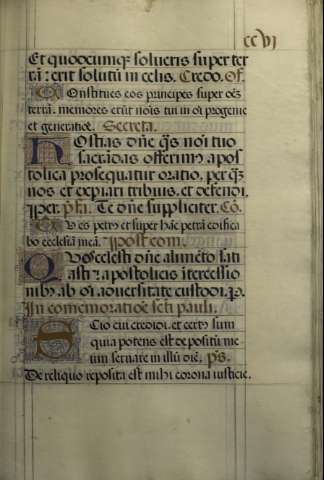 ccvi
Et quodcumqꝫ solueris super ter
rã: erit solutũ in celis. Credo. Of.
Constitues eos principes super oẽʒ
terrã. memores erũt noĩs tui in oĩ progenie
et generatiõe. Secreta.
Hostias dñe q̃s noĩ tuo
sacrãdas offerimꝰ apos
tolica prosequatur oratio. per quã
nos et expiari tribuis. et defendi.
ꝑ. p̃fa. Te dñe suppliciter. Cõ.
Tu es petrꝰ et super hãc petrã edifica
bo ecclesiã meã. post com.
Quos celesti dñe alimẽto sati
asti: apostolicis intercessio
nibꝰ ab oĩ aduersitate custodi. ꝑ.
In comemoratiõe sc̃ti pauli.
Scio cui credidi. et certꝰ sum
quia potens est depositũ me
um seruare in illũ diẽ. p̃s.
De reliquo reposita est mihi corona iusticie.